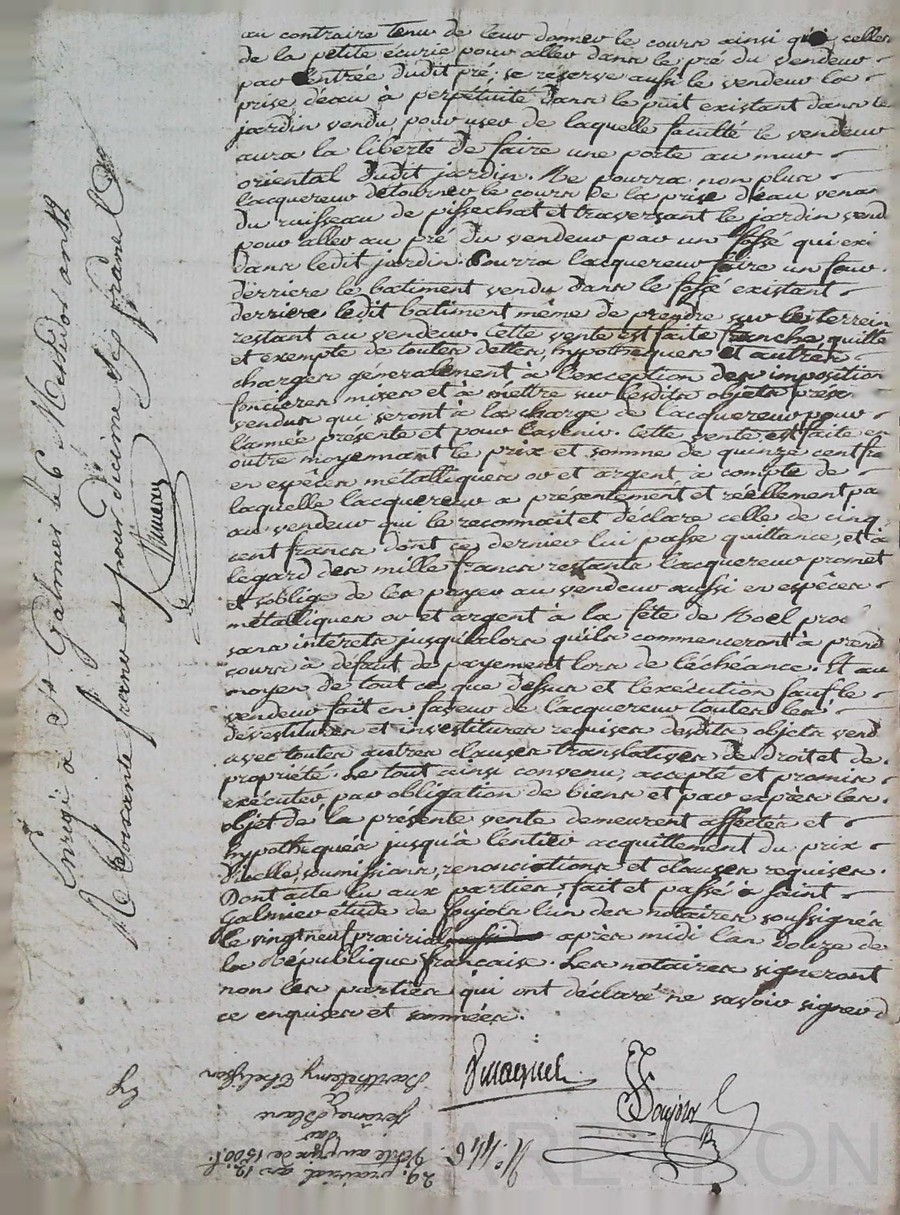 au contraire tenu de leur donner le cours ainsi qu'à celles
de la petite écurie pour aller dans le pré du vendeur
par l'entrée dudit pré; se réserve aussi le vendeur la
prise d'eau à perpétuité dans le puit existant dans le
jardin vendu pour user de laquelle faculté le vendeur
aura la liberté de faire une porte au mur
oriental dudit jardin. Ne pourra non plus
l'acquereur détourner le cours de la prise d'eau venan
du ruisseau de pissechat et traversant le jardin vend
pour aller au pré du vendeur par un fossé qui exi
dans ledit jardin. Pourra l'acquereur faire un four
derriere le batiment vendu dans le fossé existant
derriere ledit batiment même de prendre sur le terrein
restant au vendeur. Cette vente est faite franche, quitte
et exempte de toutes dettes, hypotheques et autres
charges generalement à l'exception des imposition
foncieres mises et à mettre sur lesdits objets présen
vendus qui seront à la charge de l'acquereur pour
l'année présente et pour l'avenir. Cette vente est faite en
outre moyennant le prix et somme de quinze cent fra
en espèces métalliques or et argent à compte de
laquelle l'acquereur a présentement et réellement pa
au vendeur qui le reconnait et déclare celle de cinq
cent francs dont ce dernier lui passe quittance, et à
l'égard des mille francs restants l'acquereur promet
et s'oblige de les payer au vendeur aussi en espèces
métalliques or et argent à la fête de Noel proc
sans interets jusqu'alors qu'ils commenceront à prend
cours à défaut de payement lors de l'échéance. Et au
moyen de tout ce que dessus et l'exécution sauf le
vendeur fait en faveur de l'acquereur toutes les
devestitures et investitures requises desdits objets vend
avec toutes autres clauses translatives de droit et de
propriété. Le tout ainsi convenu, accepté et promis
exécuter, par obligation de biens et par exprès les
objet de la présente vente demeurent affectés et
hypothequés jusqu'à l'entier acquittement du prix
d'icelle, soumissions, renonciations et clauses requises.
Dont acte lu aux parties, fait et passé à saint
Galmier étude de Soujols l'un des notaires soussignés
le vingt neuf prairial après midi l'an douze de
la République francaise. Les notaires signeront
non les parties qui ont déclaré ne savoir signer d
ce enquises et sommées.
Soujols
N°. 446
29. prairial an 12
Vente au prix de 1500 f.
par
Jérôme Blanc
à
Barthelemy Thelisson
à St Galmier le 6 Messidor an 12
soixante francs et pour décime six francs